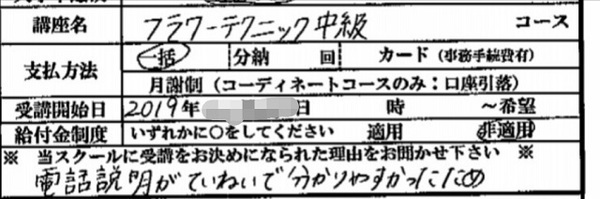 講座名 フラワーテクニック中級 コース
支払方法 一括 分納 回 カード（事務手続費有）
月謝制（コーディネートコースのみ：口座引落）
受講開始日 2019年 日 時 ～希望
給付金制度 いずれかに○をしてください 適用 非適用
※ 当スクールに受講をお決めになられた理由をお聞かせ下さい ※
電話説明がていねいで分かりやすかったため